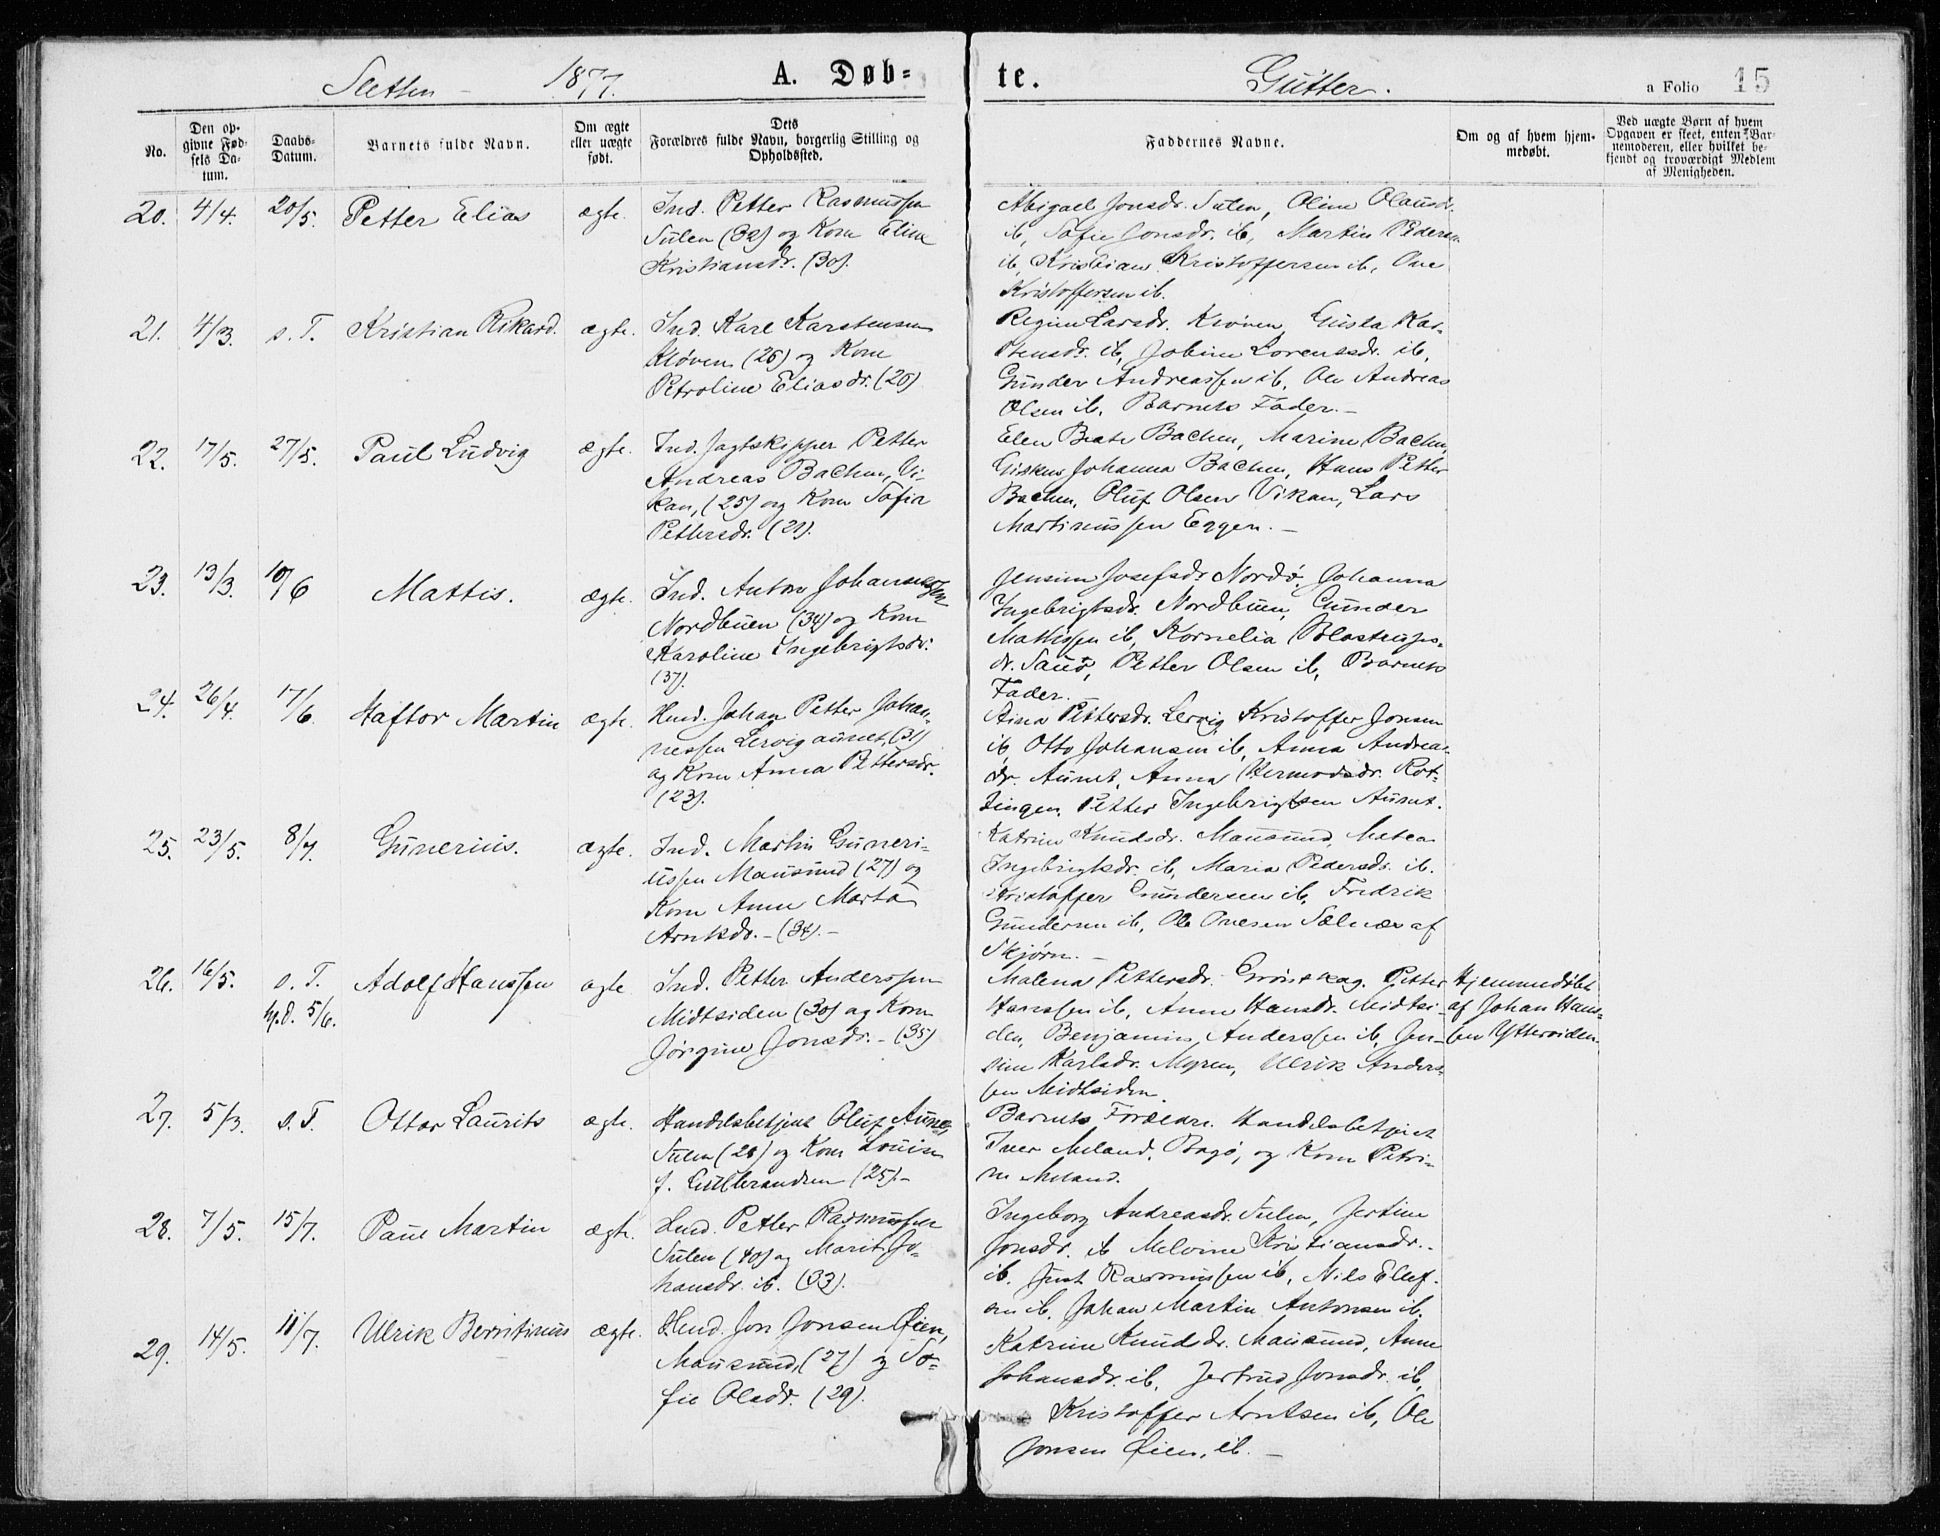 Sletten 1877. A. Døb-
te. Gutter. a Folio 15
No.
Den op-
givne Fød-
sels Da-
tum.
Daabs-
Datum.
Barnets fulde Navn.
Om ægte
eller uægte
født.
Dets
Forældres fulde Navn, borgerlig Stilling og
Opholdssted.
Faddernes Navne.
Om og af hvem hjem-
medøbt.
Ved uægte Børn af hvem
Opgaven er skeet, enten Bar-
nemoderen, eller hvilket be-
kjendt og troværdigt Medlem
af Menigheden.
20. 4/4. 20/5. Petter Elias ægte.
Ind. Petter Rasmussen
Sulen (32) og Kone Eline
Kristiansdr. (30).
Abigael Jonsdr. Sulen, Oline Olausdr.
ib, Sofie Jonsdr. ib, Martin Pedersen
ib, Kristian Kristoffersen ib, One
Kristoffersen ib.
21. 4/3. s. T. Kristian Rikard. ægte.
Ind. Karl Karstensen
Kløven (26) og Kone
Petroline Eliasdr. (26)
Regine Larsdr. Kløven, Gusta Kar-
stensdr. ib, Jobine Lorentsdr. ib,
Gunder Andreassen ib, Ole Andreas
Olsen ib. Barnets Fader.-
22. 17/5. 27/5. Paul Ludvig ægte.
Ind. Jagtskipper Petter
Andreas Bachen, Vi-
kan, (25) og Kone Sofia
Pettersdr. (21).
Elen Beate Bachen, Marine Bachen,
Johanna Bachen, Hans Petter
Bachen, Oluf Olsen Vikan, Lars
Martinussen Eggen.-
23. 13/3. 10/6 Mattis. ægte.
Ind. Anton Johannessen
Nordbuen (34) og Kone
Karoline Ingebrigtsdr.
(37).
Jensine Josefsdr. Nordø, Johanna
Ingebrigtsdr. Nordbuen, Gunder
Mathisen ib, Kornelia
dr. Sauø, Petter Olsen ib, Barnets
Fader.
24. 26/4. 17/6. Haftor Martin ægte.
Hmd. Johan Petter Johan-
nessen Lervigaunet, (31)
og Kone Anna Pettersdr.
(23).
Pettersdr. Lervig, Kristoffer Jonsen
ib, Otto Johansen ib, Anna Andreas-
dr. Aunet, Anna Hermodsdr. Rot-
tingen, Petter Ingebrigtsen Aunet.
25. 23/5. 8/7. Gunerius. ægte.
Ind. Martin Guneri-
ussen Mausund (27) og
Kone Anne Marta
Arntsdr.- (34).-
Katrine Knudsdr. Mausund, Matea
Ingebrigtsdr. ib, Maria Pedersdr. ib.
Kristoffer Gundersen ib, Fredrik
Gundersen ib, Ole Onesen Sælnæs af
Skjørn.-
26. 16/5. s. T. Adolf Hanssen ægte
hj.d. 5/6.
Ind. Petter Anderssen
Midtsiden (30) og Kone
Jørgine Jonsdr.- (35)
Malena Pettersdr. Grønskag. Petter
Hanssen ib, Anne Hansdr. Midtsi-
den, Benjamin Anderssen ib, Jen-
sine Karlsdr. Myren, Ulrik Anders-
sen Midtsiden.
Hjemmedøbt
af Johan Hans-
sen Yttersiden
27. 5/3. s. T. Ottar Laurits ægte.
Handelsbetjent Oluf Aune,
Sulen (28) og Kone Louise
f. Gulbrandsen (25).-
Barnets Forældre. Handelsbetjent
Iver Meland, Bogø, og Kone Petri-
ne Meland.
28. 7/5. 15/7. Paul Martin ægte.
Hmd. Petter Rasmussen
Sulen (40) og Marit Jo-
hansdr. ib. (33).
Ingeborg Andreasdr. Sulen, Jertine
Jonsdr. ib Melvine Kristiansdr.
ib. Just Rasmussen ib, Nils Elef-
sen ib, Johan Martin Antonsen ib.
29. 14/5. 11/7. Ulrik Berntinus ægte.
Hmd. Jon Jonsen Øien,
Mausund, (27) og So-
fie Olsdr. (29).
Katrine Knudsdr. Mausund, Anne
Johansdr. ib, Jertrud Jonsdr. ib,
Kristoffer Arntsen ib, Ole
Jonsen Øien, ib.-